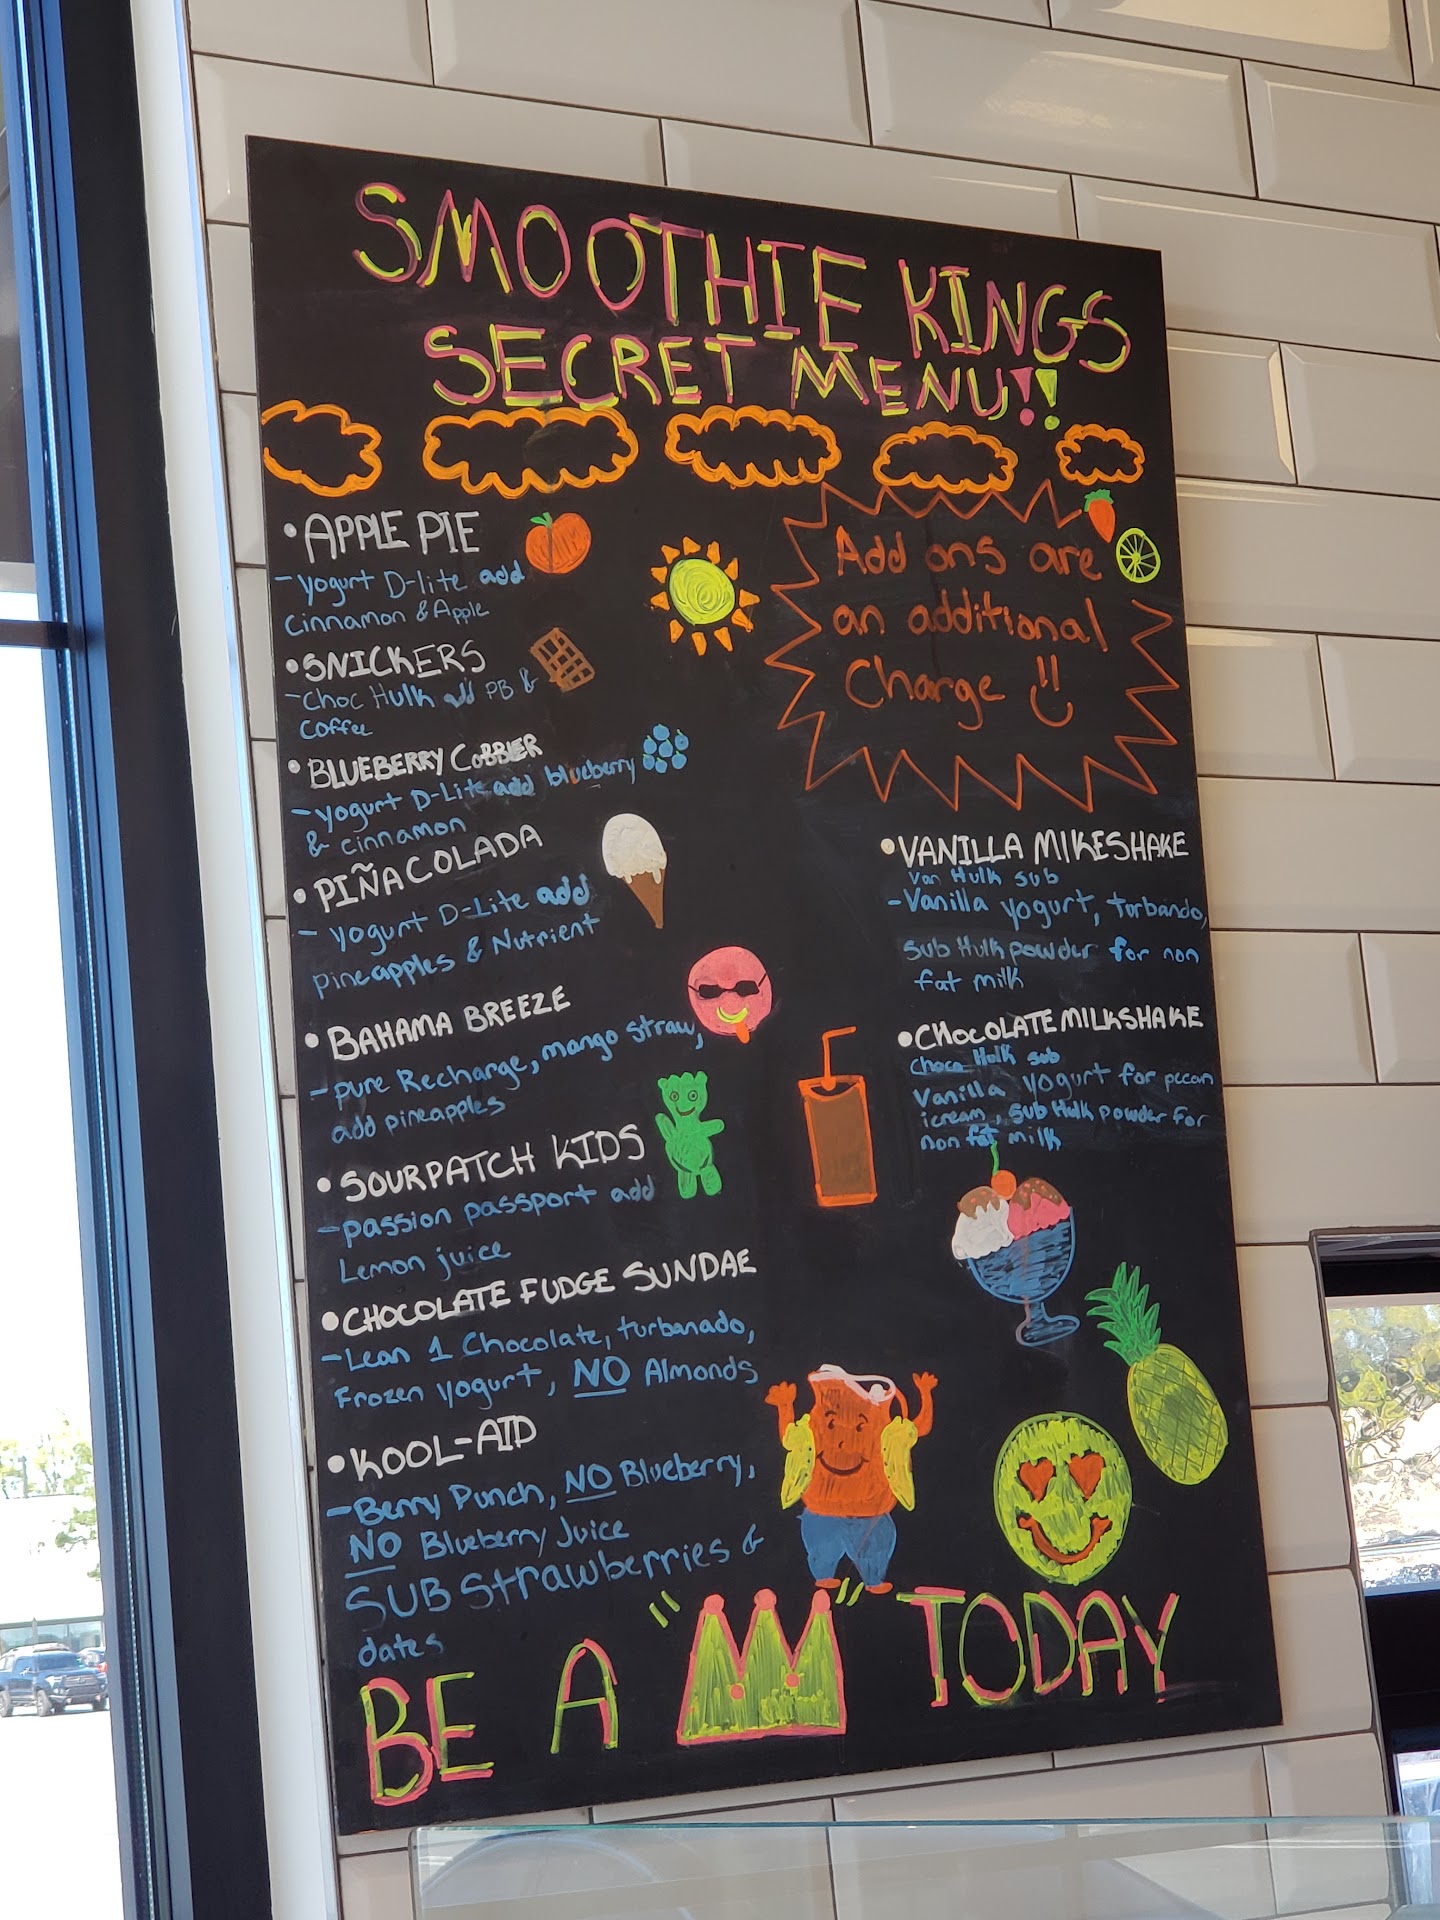 SMOOTHIE KINGS
SECRET MENU!!
• APPLE PIE
- yogurt D-lite add
cinnamon & Apple
• SNICKERS
- Choc Hulk add PB &
Coffee
• BLUEBERRY CobblER
- yogurt D-Lite add blueberry
& cinnamon
• PIÑA COLADA
- yogurt D-Lite add
pineapples & Nutrient
• BAHAMA BREEZE
- pure Recharge, mango straw,
add pineapples
• SOURPATCH KIDS
- passion passport add
Lemon juice
• CHOCOLATE FUDGE SUNDAE
- Lean 1 Chocolate, turbanado,
Frozen yogurt, NO Almonds
• KOOL-AID
- Berry Punch, NO Blueberry,
NO Blueberry Juice
SUB Strawberries &
dates
Add ons are
an additional
Charge
• VANILLA MIKESHAKE
Van Hulk sub
- Vanilla yogurt, torbando,
sub Hulk powder for non
fat milk
• CHOCOLATE MILKSHAKE
Choco Hulk sub
Vanilla yogurt for pecan
icream, sub Hulk powder for
non fat milk
BE A " " TODAY